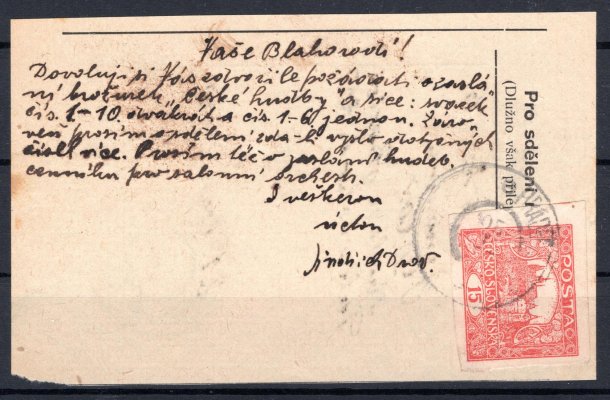 Vaše Blahorodí!
Dovoluji si Vás zdvořile požádati o zaslá-
ní brožurek „České hudby" a sice: svazek
čís. 1-10. dvakrát a čís. 1-6 jednou. Záro-
veň prosím o sdělení zda-li vyšlo dotyčných
čísel více. Prosím též o zaslání hudeb.
cenníku pro salonní orchestr.
S veškerou
úctou
Jindřich
Pro sdělení
(Dlužno však přile
POŠTA
ČESKO-SLOVENSKÁ
15